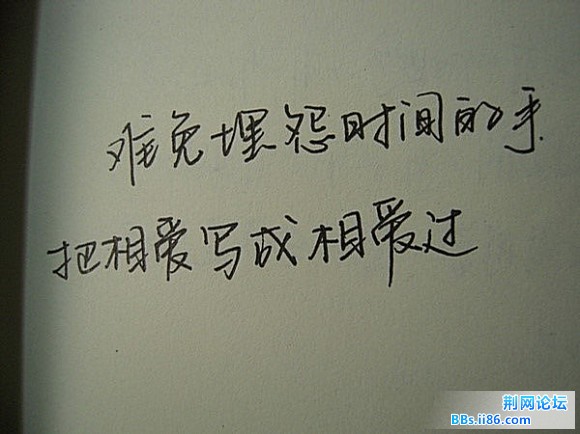 难免埋怨时间的手
把相爱写成相爱过
荆网论坛
BBs.ii86.com